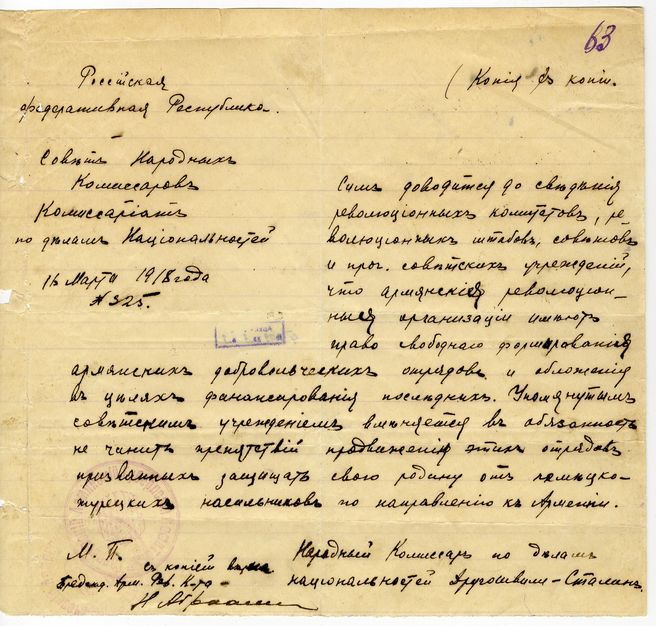 63
(Копія съ копіи.
Россійская
Федеративная Республика.
Совѣтъ Народныхъ
Комиссаровъ
Комиссаріатъ
по дѣламъ Національностей
16 Марта 1918 года
№ 325.
Симъ доводится до свѣдѣнія
революціонныхъ комитетовъ, ре-
волюціонныхъ штабовъ, совѣтовъ
и проч. совѣтскихъ учрежденій,
что армянскія революціон-
ныя организаціи имѣютъ
право свободнаго формированія
армянскихъ добровольческихъ отрядовъ и обложенія
въ цѣляхъ финансированія послѣднихъ. Упомянутымъ
совѣтскимъ учрежденіемъ вмѣняется въ обязанность
не чинить препятствій продвиженію этихъ отрядовъ
призванныхъ защищать свою родину отъ немецко-
турецкихъ насильниковъ по направленію къ Арменіи.
М. П.
Народный Комиссаръ по дѣламъ
національностей Джугошвили-Сталинъ.
съ копіей вѣрна
Предсѣд. Арм. Рев. К-та